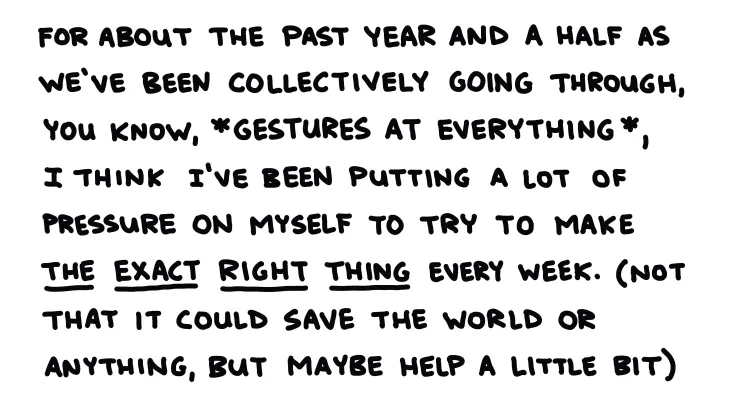 FOR ABOUT THE PAST YEAR AND A HALF AS
WE'VE BEEN COLLECTIVELY GOING THROUGH,
YOU KNOW, *GESTURES AT EVERYTHING*,
I THINK I'VE BEEN PUTTING A LOT OF
PRESSURE ON MYSELF TO TRY TO MAKE
THE EXACT RIGHT THING EVERY WEEK. (NOT
THAT IT COULD SAVE THE WORLD OR
ANYTHING, BUT MAYBE HELP A LITTLE BIT)